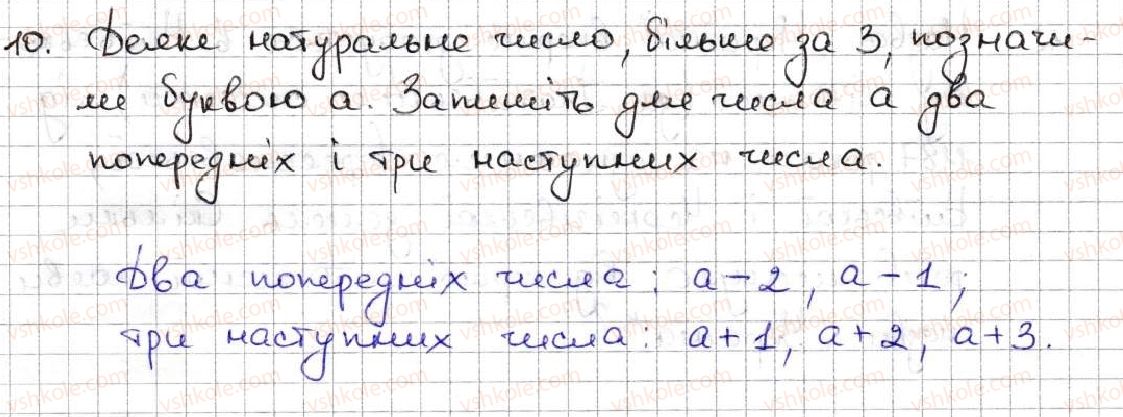 10. Деяке натуральне число, більше за 3, позначи-
ли буквою а. Запишіть для числа а два
попередніх і три наступних числа.
Два попередніх числа: а - 2, а - 1;
три наступних числа: а + 1, а + 2, а + 3.